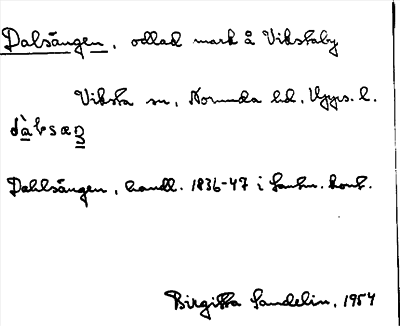 Dalsängen, odlad mark å Vikstaby
Viksta sn, Norunda hd, Upps. l.
Dahlsängen, handl. 1836-47 i Lantm. kont.
Birgitta Sandelin, 1954